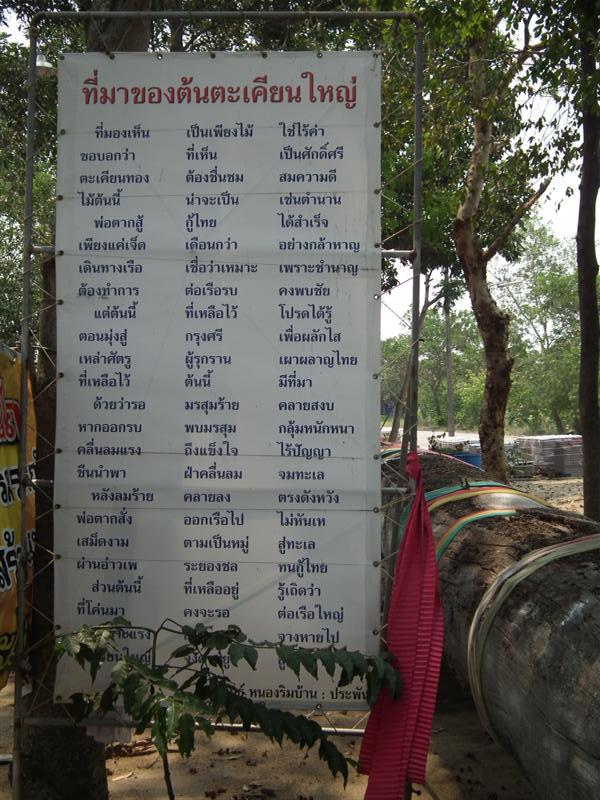 ที่มาของต้นตะเคียนใหญ่
ที่มองเห็น เป็นเพียงไม้ ใช่ไร้ค่า
ขอบอกว่า ที่เห็น เป็นศักดิ์ศรี
ตะเคียนทอง ต้องชื่นชม สมความดี
ไม้ต้นนี้ น่าจะเป็น เช่นตำนาน
พ่อตากสู้ กู้ไทย ได้สำเร็จ
เพียงแค่เจ็ด เดือนกว่า อย่างกล้าหาญ
เดินทางเรือ เชื่อว่าเหมาะ เพราะชำนาญ
ต้องทำการ ต่อเรือรบ คงพบชัย
แต่ต้นนี้ ที่เหลือไว้ โปรดได้รู้
ตอนมุ่งสู่ กรุงศรี เพื่อผลักไส
เหล่าศัตรู ผู้รุกราน เผาผลาญไทย
ที่เหลือไว้ ต้นนี้ มีที่มา
ด้วยว่ารอ มรสุมร้าย คลายสงบ
หากออกรบ พบมรสุม กลุ้มหนักหนา
คลื่นลมแรง ถึงแข็งใจ ไร้ปัญญา
ขืนนำพา ฝ่าคลื่นลม จมทะเล
หลังลมร้าย คลายลง ตรงดังหวัง
พ่อตากสั่ง ออกเรือไป ไม่หันเห
เสม็ดงาม ตามเป็นหมู่ สู่ทะเล
ผ่านอ่าวเพ ระยองชล ทนกู้ไทย
ส่วนต้นนี้ ที่เหลืออยู่ รู้เถิดว่า
ที่โค่นมา คงจะรอ ต่อเรือใหญ่
จางหายไป
หนองริมบ้าน : ประพัน